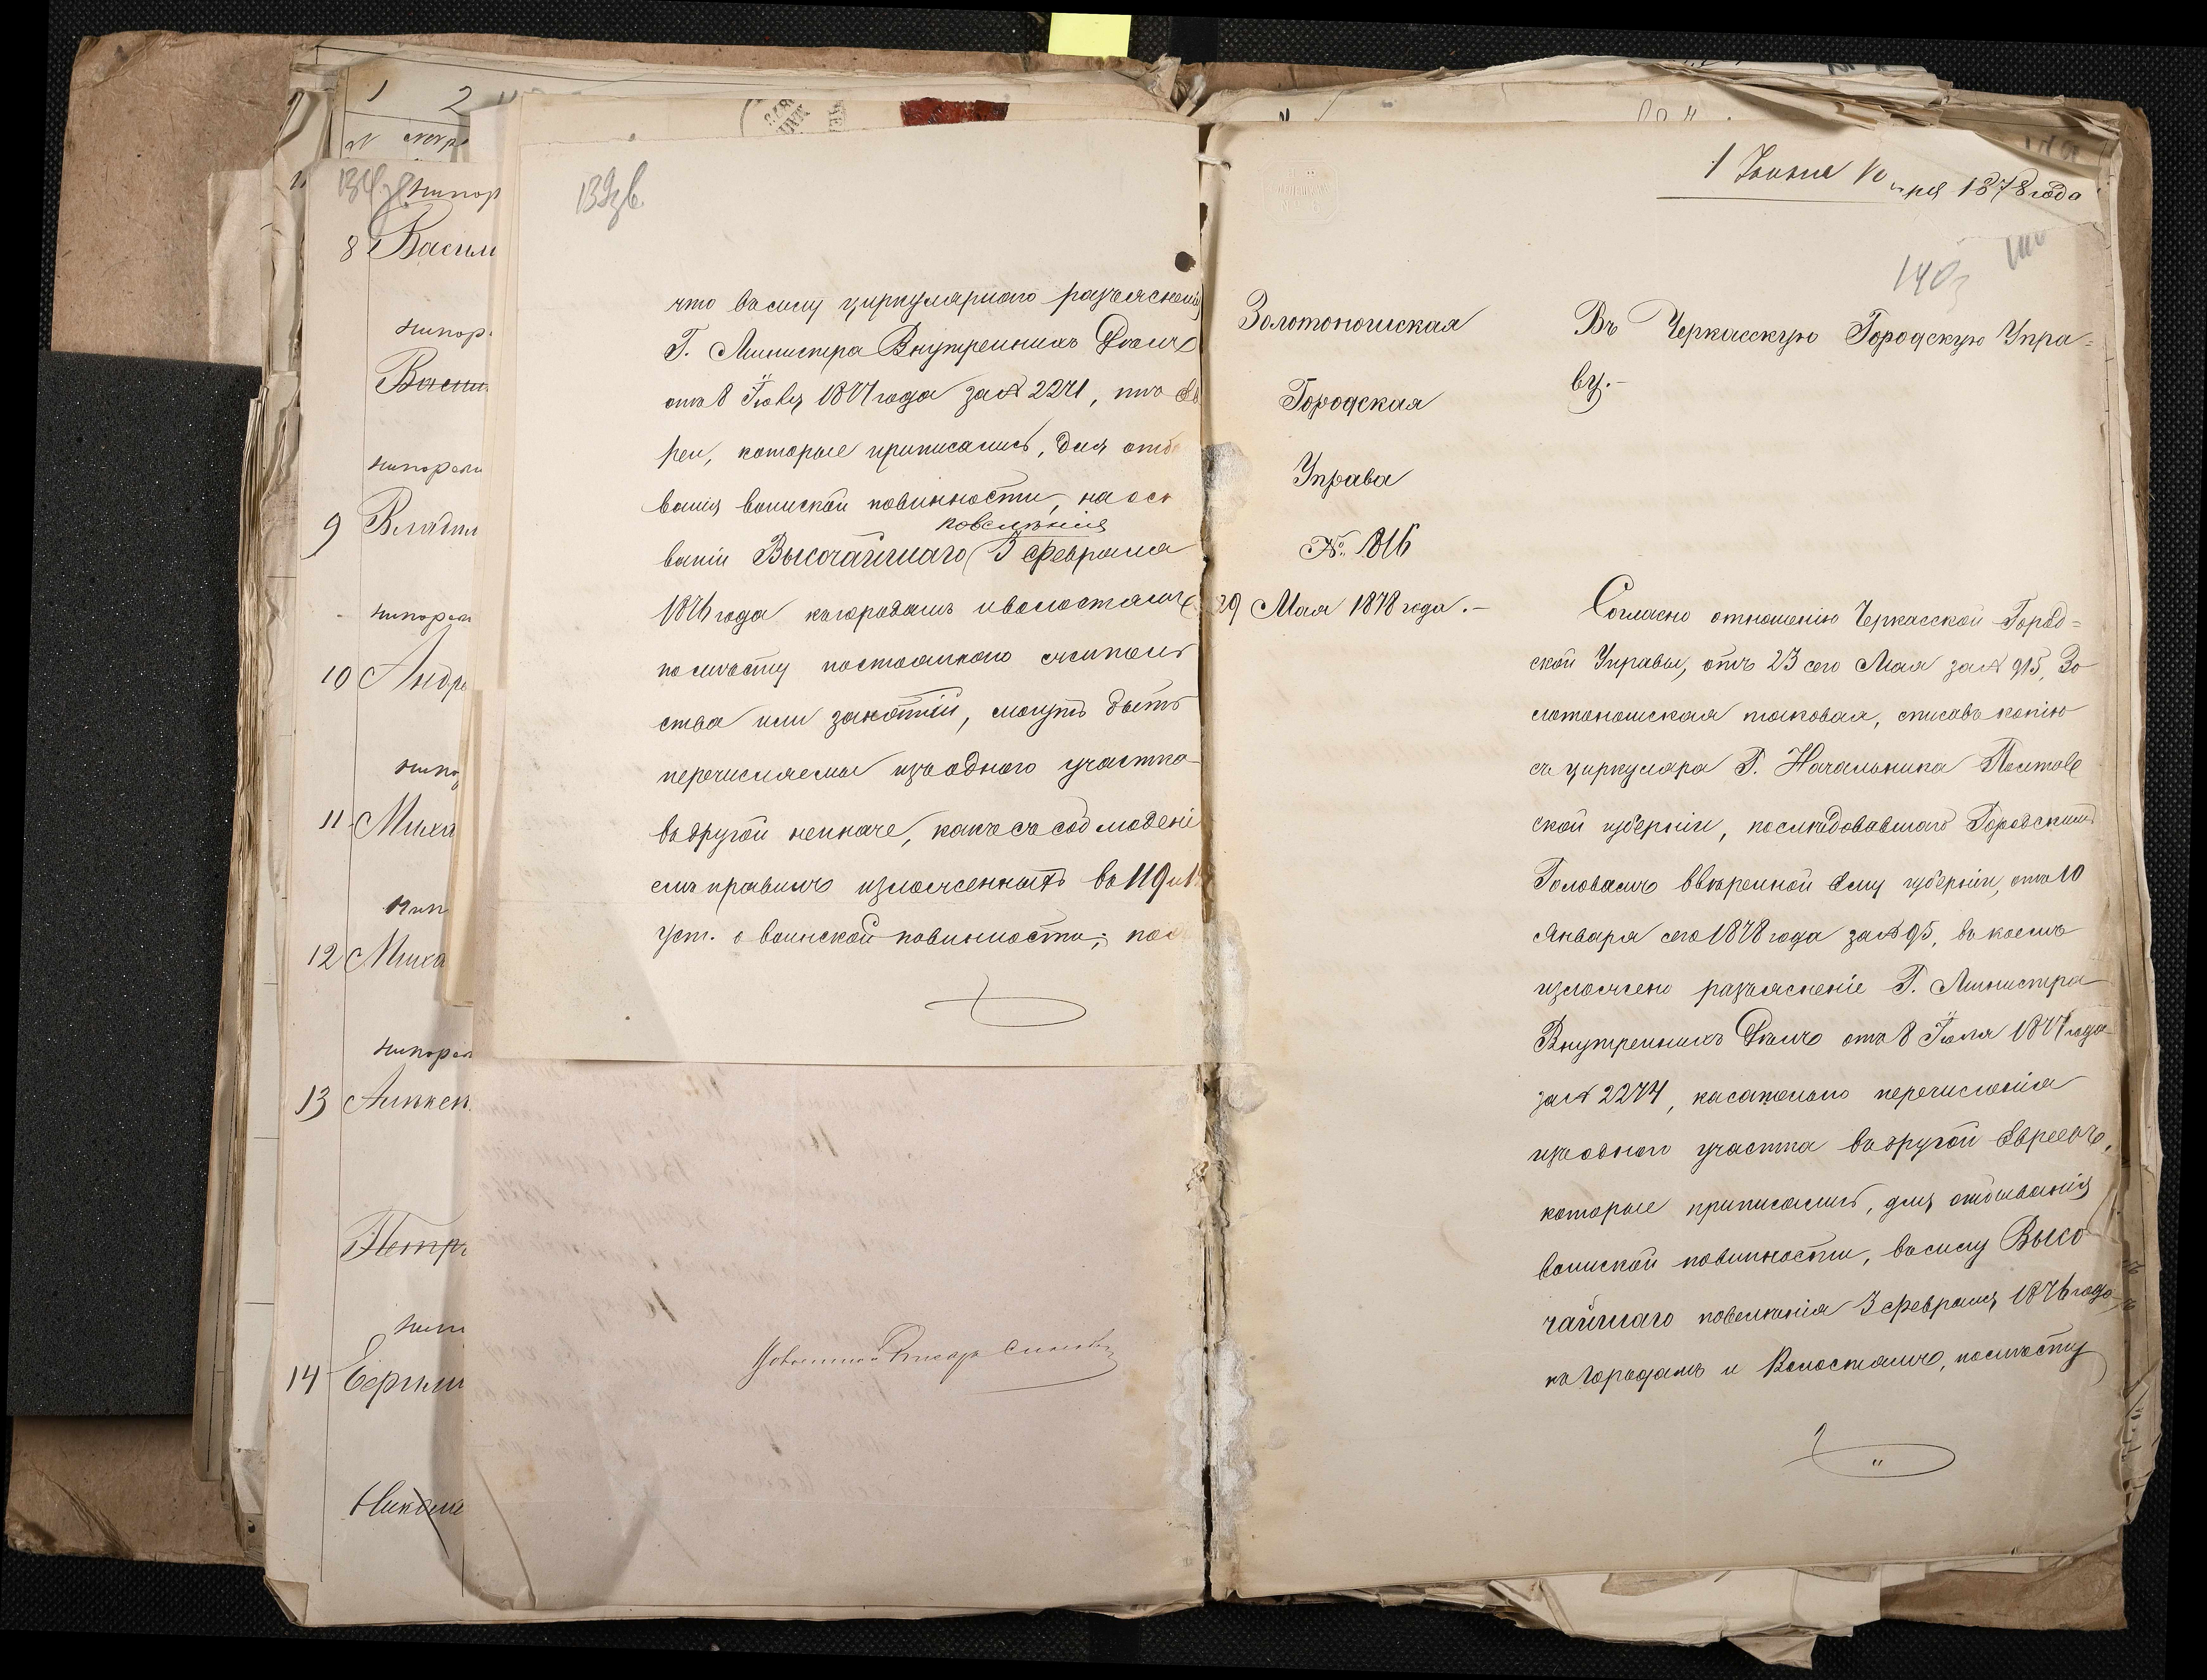 1 2
№
134
8 Васил
нипор
Васил
нипорем
9 Владим
нипорем
10 Андре
11 Миха
12 Миха
нипорем
13 Алексѣ
Петр
14 Сергѣй
Никола
139
что въ силу циркулярного разъясненія
Г. Министра Внутреннихъ Дѣлъ
отъ 8 Іюля 1877 года за № 2271, что Ев
реи, которые приписались, для отбы
ванія воинской повинности, на осн
повелѣнія
ваніи Высочайшаго 3 февраля
1876 года къ городамъ и волостямъ
по мѣсту постояннаго житель
ства или занятій, могутъ быть
перечисляемы изъ одного участка
въ другой не иначе, какъ съ соблюдені
емъ правилъ изложенныхъ въ 119 и 1
Уст. о воинской повинности; пос
1 Іюня 1878 года
140
Золотоношская
Городская
Управа
№ 816
29 Мая 1878 года.-
Въ Черкасскую Городскую Упра=
ву.-
Согласно отношенію Черкасской Город=
ской Управы, отъ 23 сего Мая за № 915, Зо
лотоношская таковая, списавъ копію
съ циркуляра Г. Начальника Полтав
ской губерніи, послѣдовавшаго Городскимъ
Головамъ ввѣренной Ему губерніи, отъ 10
Января сего 1878 года за № 95, въ коемъ
изложено разъясненіе Г. Министра
Внутреннихъ Дѣлъ отъ 8 Іюля 1877 года
за № 2274, касательно перечисленія
изъ одного участка въ другой Евреевъ,
которые приписались, для отбыванія
воинской повинности, въ силу Высо
чайшаго повелѣнія 3 февраля 1876 года
къ Городамъ и Волостямъ, по мѣсту